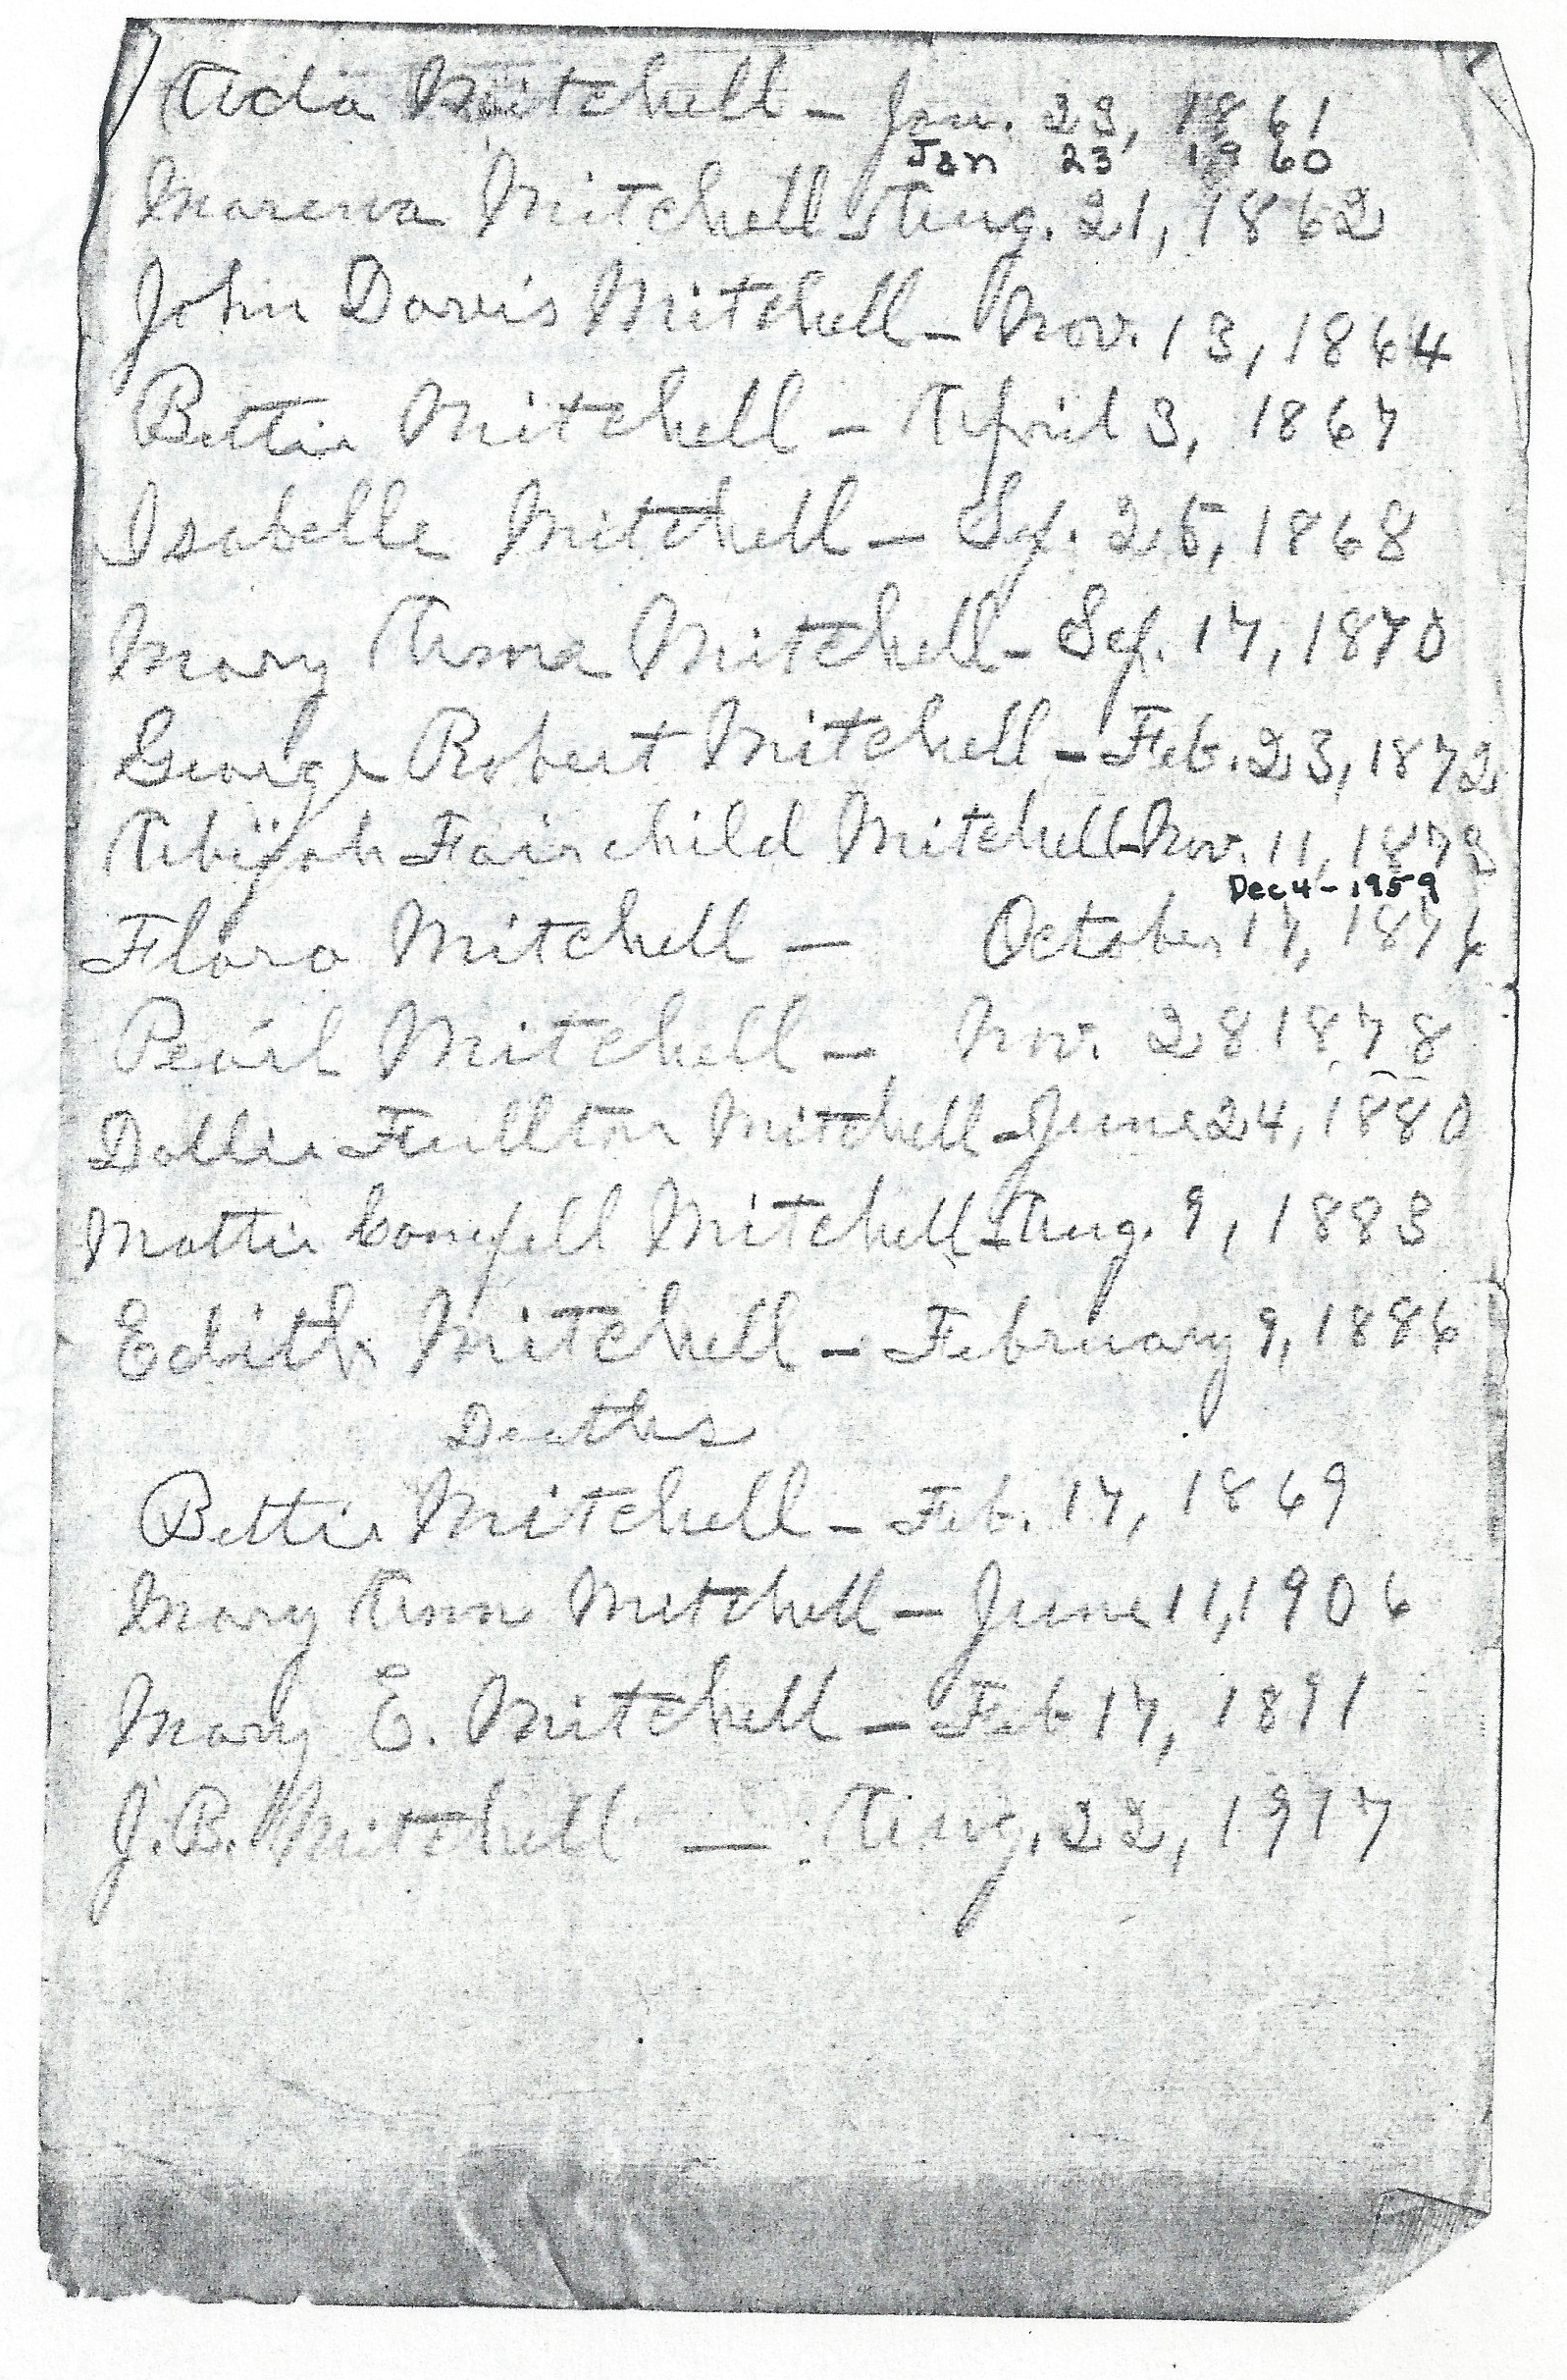 Ada Mitchell – Jan. 23, 1861
Jan 23 1960
Marena Mitchell – Aug. 21, 1862
John Davis Mitchell – Nov. 13, 1864
Bettie Mitchell – April 3, 1867
Isabelle Mitchell – Sep. 25, 1868
Mary Anna Mitchell – Sep. 17, 1870
George Robert Mitchell – Feb. 23, 1872
Abijah Fairchild Mitchell – Nov. 11, 1873
Dec 4 – 1959
Flora Mitchell – October 17, 1876
Pearl Mitchell – Nov. 28 1878
Dollie Fullton Mitchell – June 24, 1880
Mattie Mitchell – Aug. 9, 1883
Edith Mitchell – February 9, 1886
Deaths
Bettie Mitchell – Feb. 17, 1869
Mary Ann Mitchell – June 11, 1906
Mary E. Mitchell – Feb 17, 1891
J. B. Mitchell – Aug. 22, 1917